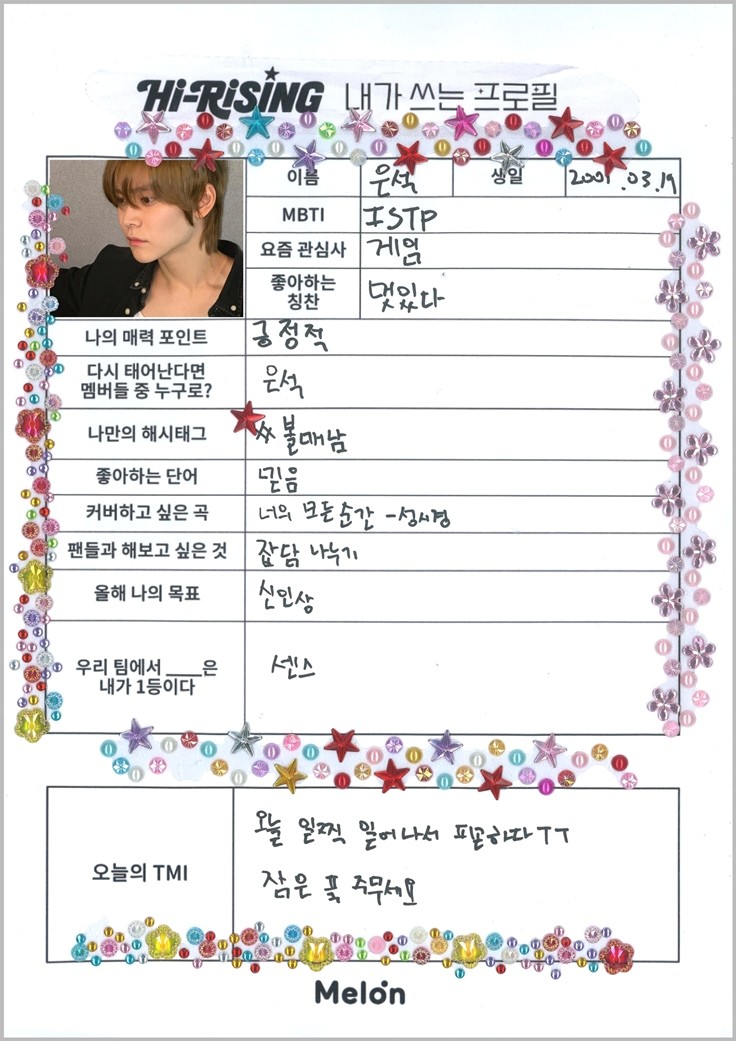 Hi-RiSiNG 내가 쓰는 프로필
이름 은석 생일 2001.03.19
MBTI ISTP
요즘 관심사 게임
좋아하는
칭찬 멋있다
나의 매력 포인트 긍정적
다시 태어난다면
멤버들 중 누구로? 은석
나만의 해시태그 #볼매남
좋아하는 단어 믿음
커버하고 싶은 곡 너의 모든 순간 - 성시경
팬들과 해보고 싶은 것 잡담 나누기
올해 나의 목표 신인상
우리 팀에서 ____은
내가 1등이다 센스
오늘의 TMI
오늘 일찍 일어나서 피곤하다 ㅜㅜ
잠은 푹 주무세요
Melon